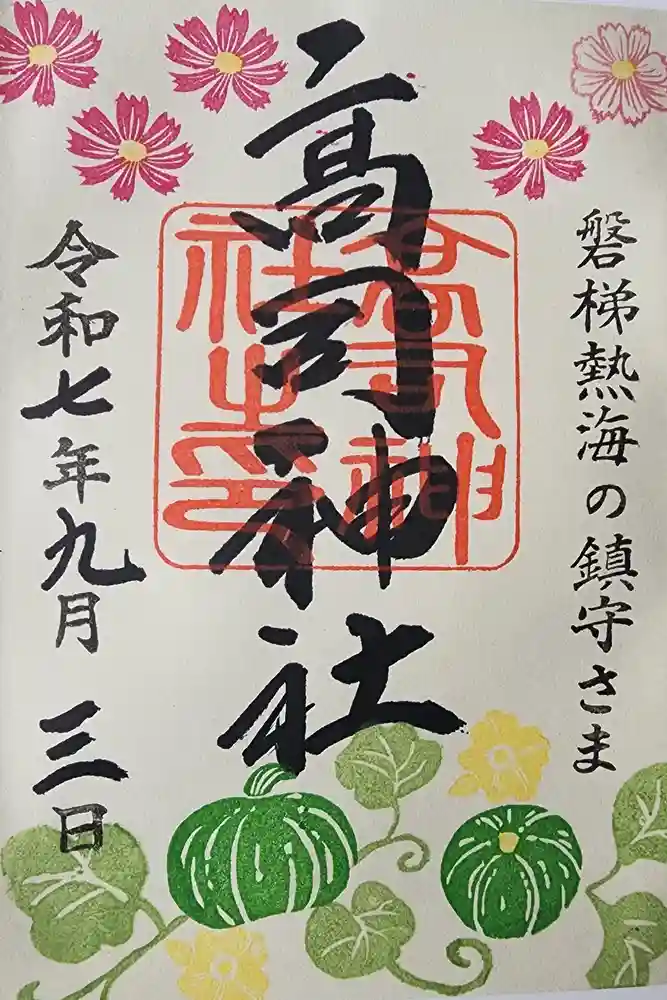 磐梯熱海の鎮守さま
高司神社
高司神社之印
令和七年九月三日